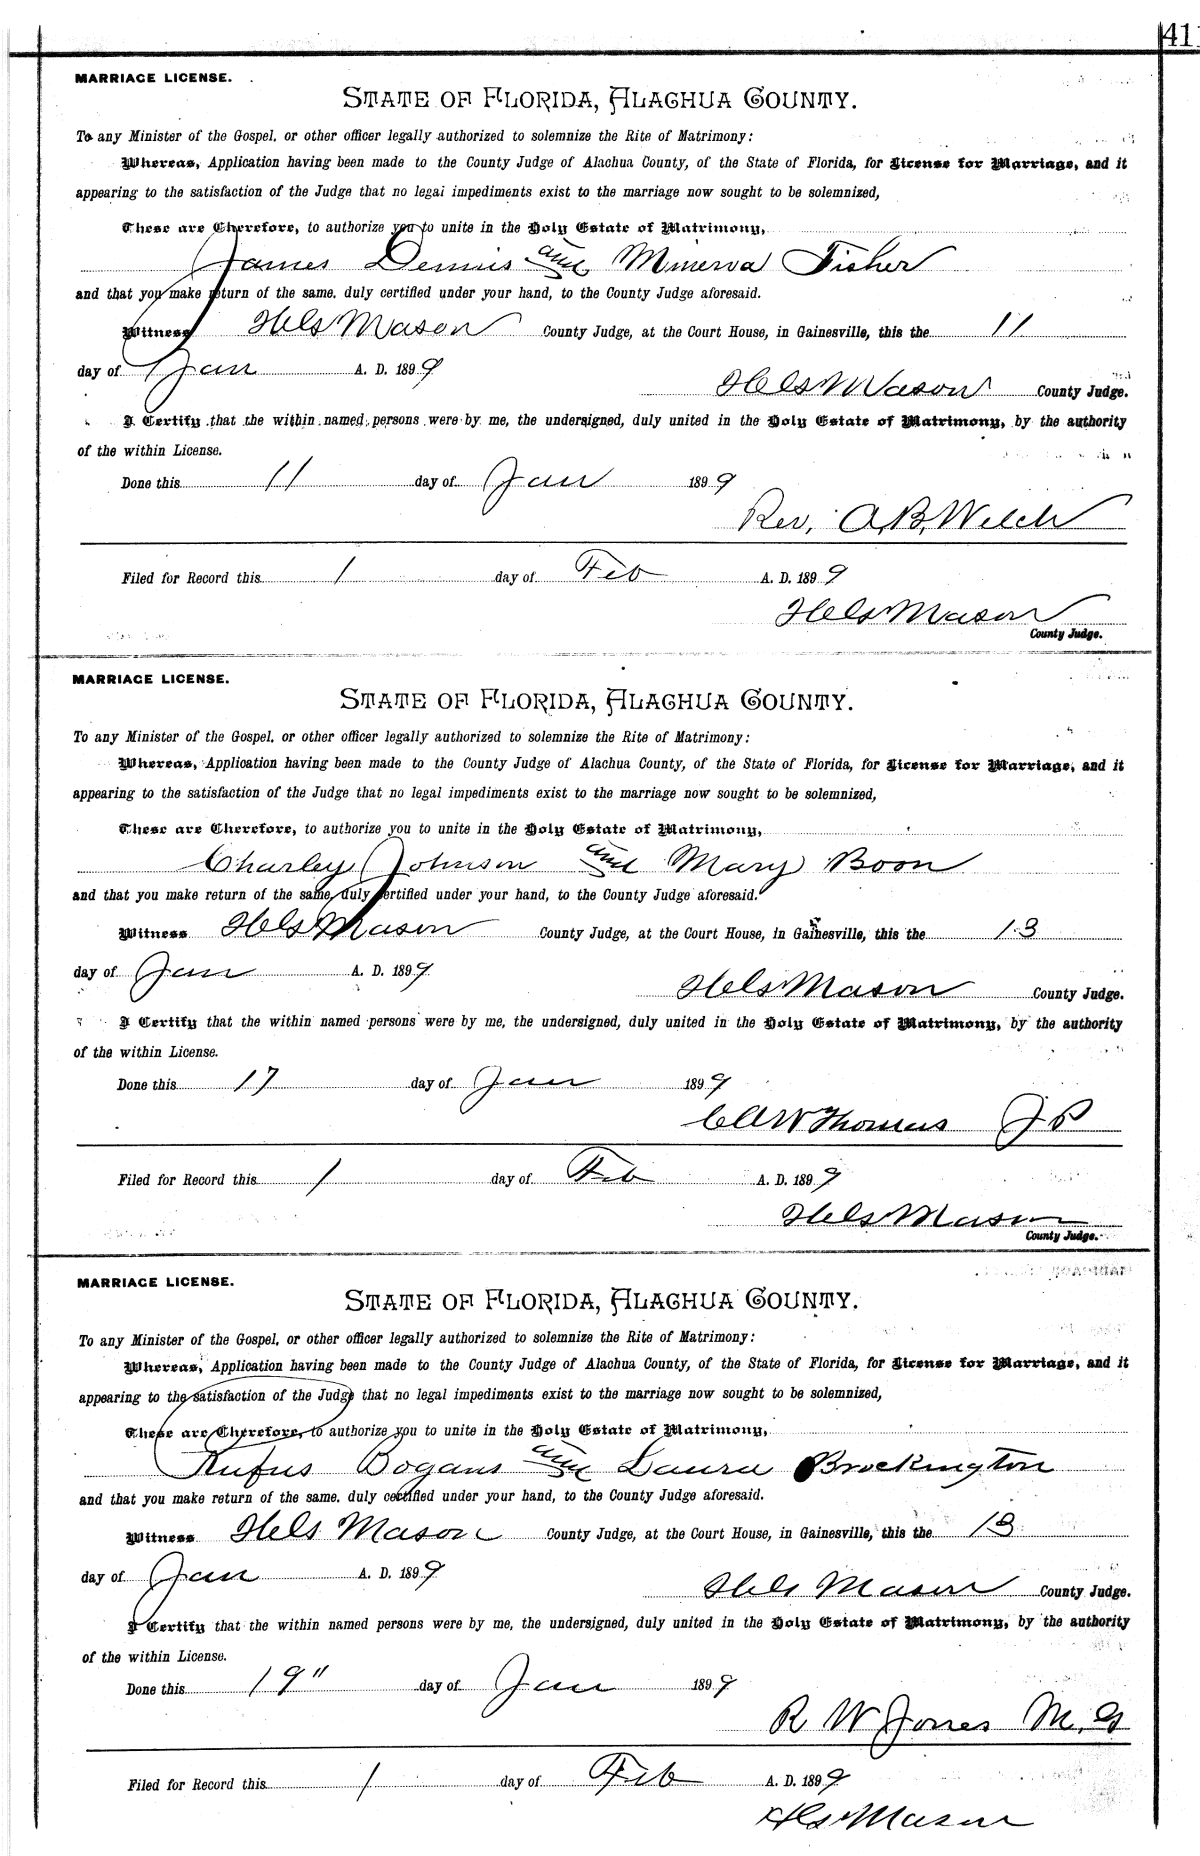 41
MARRIAGE LICENSE.
STATE OF FLORIDA, ALACHUA COUNTY.
To any Minister of the Gospel, or other officer legally authorized to solemnize the Rite of Matrimony:
Whereas, Application having been made to the County Judge of Alachua County, of the State of Florida, for License for Marriage, and it
appearing to the satisfaction of the Judge that no legal impediments exist to the marriage now sought to be solemnized,
These are Therefore, to authorize you to unite in the Holy Estate of Matrimony,
James Dennis and Minerva Fisher
and that you make return of the same, duly certified under your hand, to the County Judge aforesaid.
Witness H E S Mason County Judge, at the Court House, in Gainesville, this the 11
day of Jan A. D. 1899
H E S Mason County Judge.
I Certify that the within named persons were by me, the undersigned, duly united in the Holy Estate of Matrimony, by the authority
of the within License.
Done this 11 day of Jan 1899
Rev. A. B. Welch
Filed for Record this 1 day of Feb A. D. 1899
H E S Mason
County Judge.
MARRIAGE LICENSE.
STATE OF FLORIDA, ALACHUA COUNTY.
To any Minister of the Gospel, or other officer legally authorized to solemnize the Rite of Matrimony:
Whereas, Application having been made to the County Judge of Alachua County, of the State of Florida, for License for Marriage, and it
appearing to the satisfaction of the Judge that no legal impediments exist to the marriage now sought to be solemnized,
These are Therefore, to authorize you to unite in the Holy Estate of Matrimony,
Charley Johnson and Mary Boon
and that you make return of the same, duly certified under your hand, to the County Judge aforesaid.
Witness H E S Mason County Judge, at the Court House, in Gainesville, this the 13
day of Jan A. D. 1899
H E S Mason County Judge.
I Certify that the within named persons were by me, the undersigned, duly united in the Holy Estate of Matrimony, by the authority
of the within License.
Done this 17 day of Jan 1899
C A W Thomas J P
Filed for Record this 1 day of Feb A. D. 1899
H E S Mason
County Judge.
MARRIAGE LICENSE.
STATE OF FLORIDA, ALACHUA COUNTY.
To any Minister of the Gospel, or other officer legally authorized to solemnize the Rite of Matrimony:
Whereas, Application having been made to the County Judge of Alachua County, of the State of Florida, for License for Marriage, and it
appearing to the satisfaction of the Judge that no legal impediments exist to the marriage now sought to be solemnized,
These are Therefore, to authorize you to unite in the Holy Estate of Matrimony,
Rufus Bogans and Laura Brockington
and that you make return of the same, duly certified under your hand, to the County Judge aforesaid.
Witness H E S Mason County Judge, at the Court House, in Gainesville, this the 13
day of Jan A. D. 1899
H E S Mason County Judge.
I Certify that the within named persons were by me, the undersigned, duly united in the Holy Estate of Matrimony, by the authority
of the within License.
Done this 19" day of Jan 1899
R W Jones M. G
Filed for Record this 1 day of Feb A. D. 1899
H E S Mason